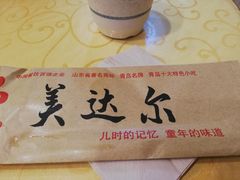 山东省著名商标 青岛名牌 青岛十大特色小吃
美达尔
儿时的记忆 童年的味道